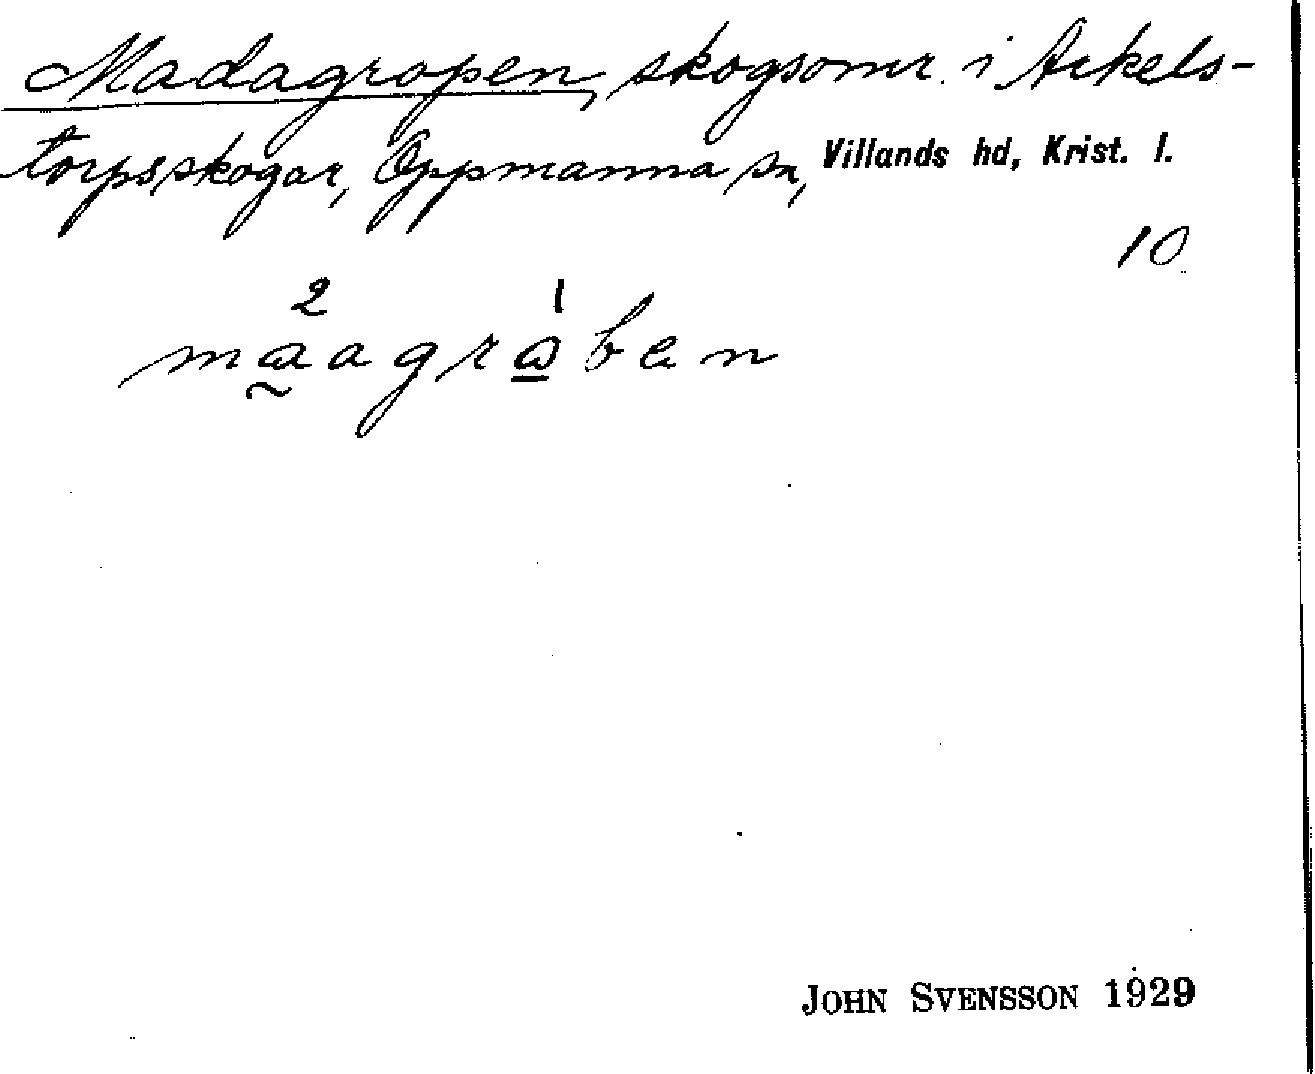 Madagropen, skogsomr. i Arkels-
torpsskogar, Oppmanna sn, Villands hd, Krist. l.
10
2 1
maagråben
JOHN SVENSSON 1929